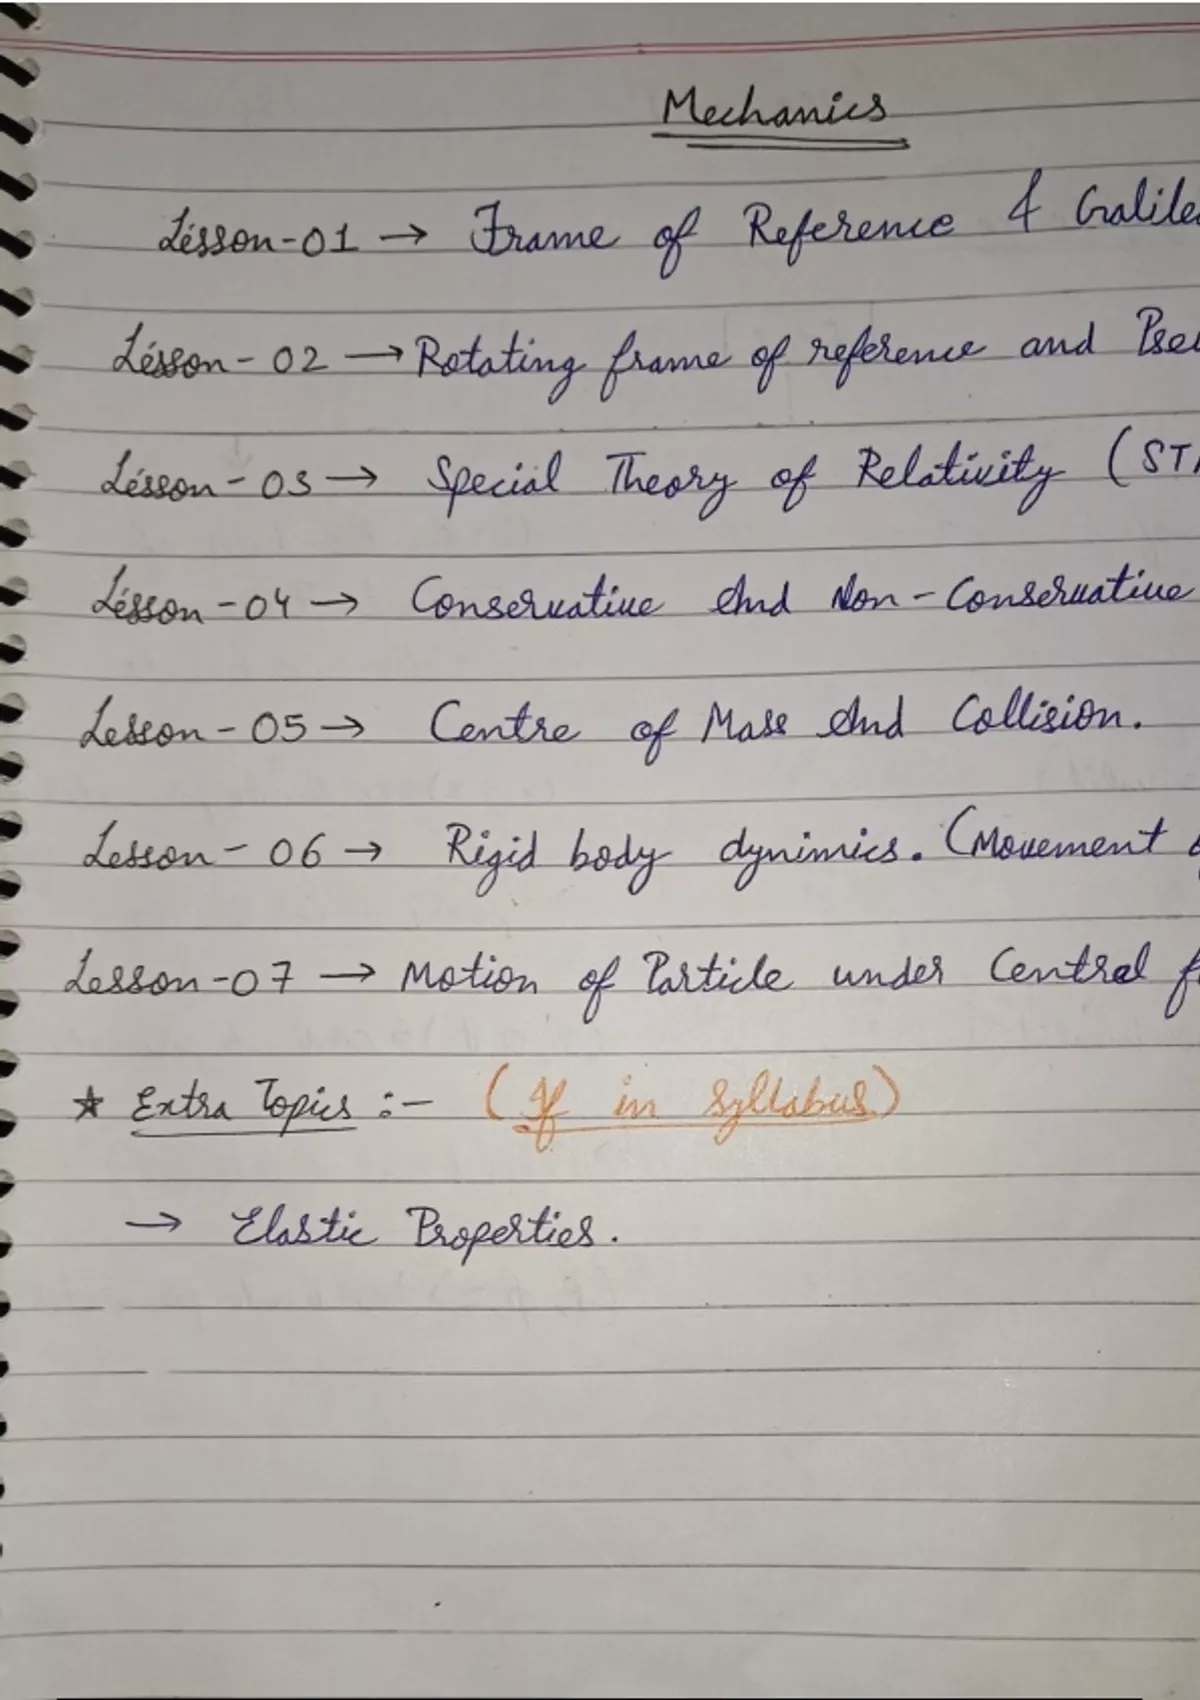 Mechanics
Lesson-01 → Frame of Reference & Galile
Lesson-02 → Rotating frame of reference and Pseu
Lesson-03 → Special Theory of Relativity (ST
Lesson-04 → Conservative And Non-Conservative
Lesson-05 → Centre of Mass And Collision.
Lesson-06 → Rigid body dynimics. (Movement o
Lesson-07 → Motion of Particle under Central f
★ Extra Topics :- (If in Syllabus)
→ Elastic Properties.